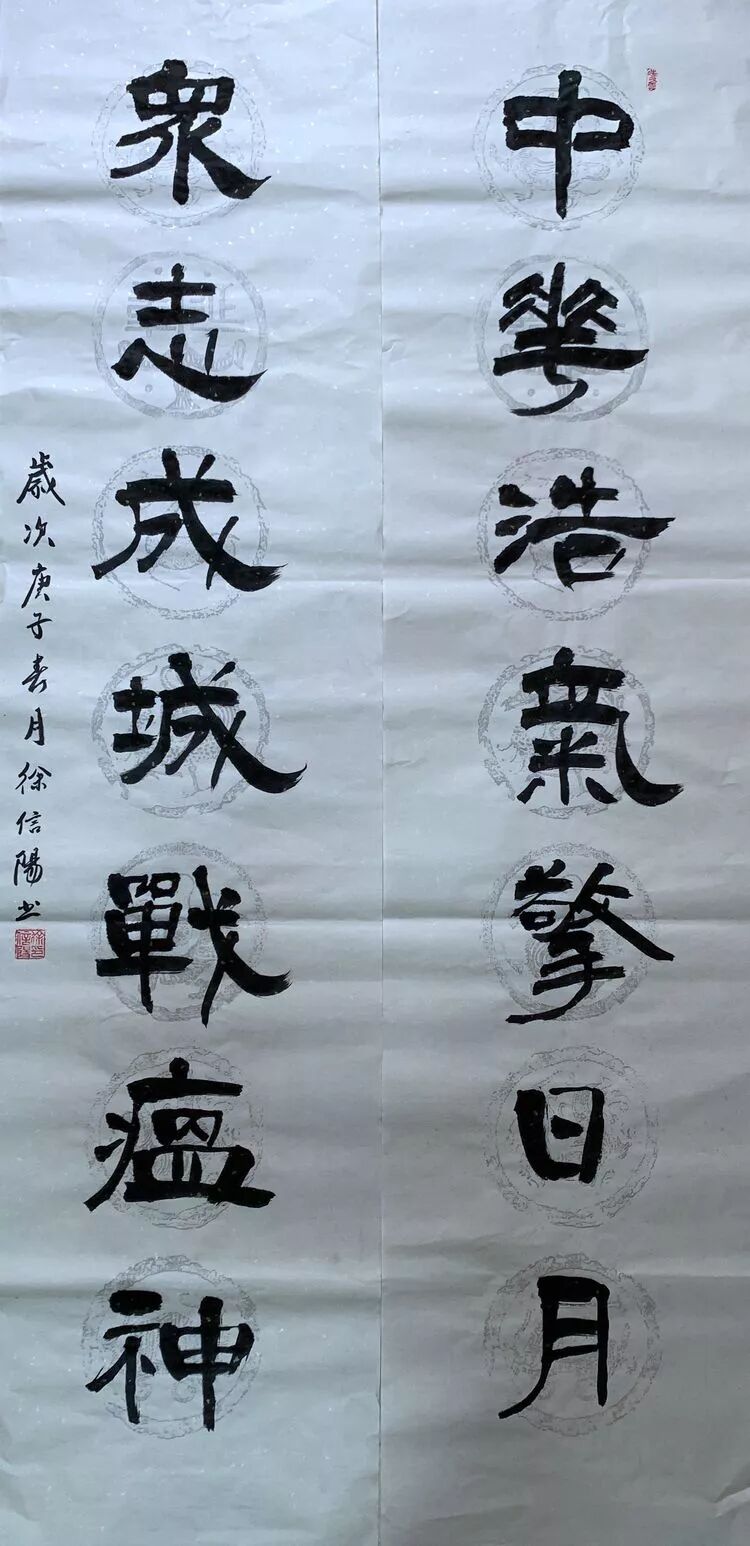 中華浩氣擎日月
衆志成城戰瘟神
歲次庚子春月徐信陽书